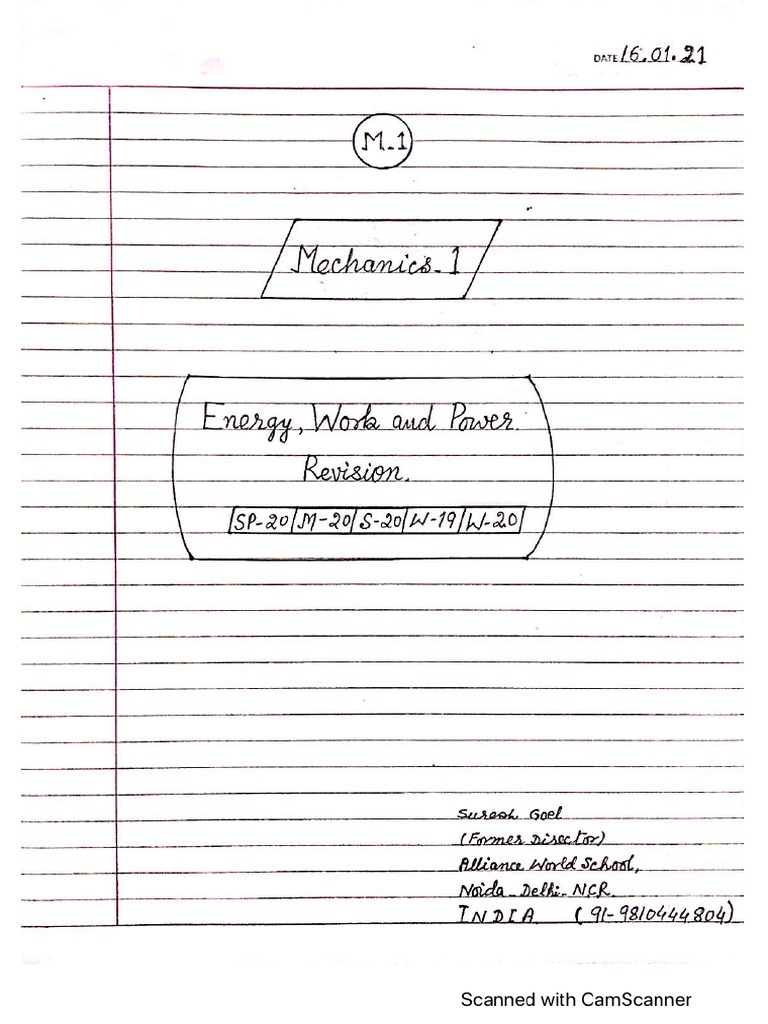 DATE 16.01.21
M-1
Mechanics-1
Energy, Work and Power
Revision.
SP-20/M-20/S-20/W-19/W-20
Suresh Goel
(Former Director)
Alliance World School,
Noida-Delhi-NCR.
INDIA (91-9810444804)
Scanned with CamScanner